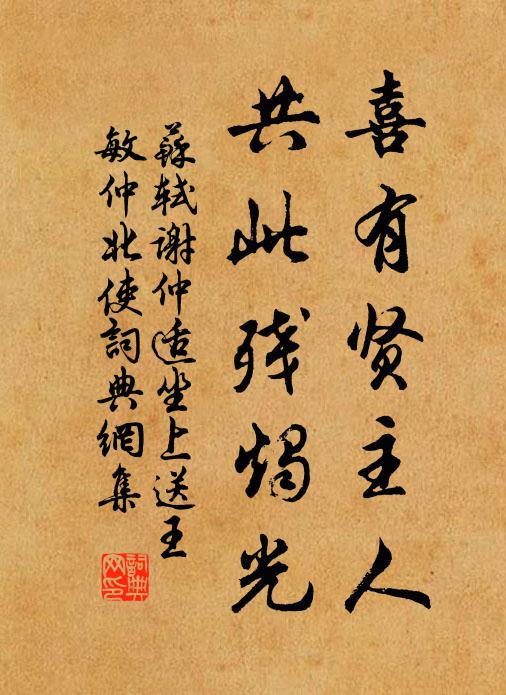 喜有贤主人
共此残烛光
蘇轼谢仲适坐上送王
敏仲北使詞典網集
詞典
网印